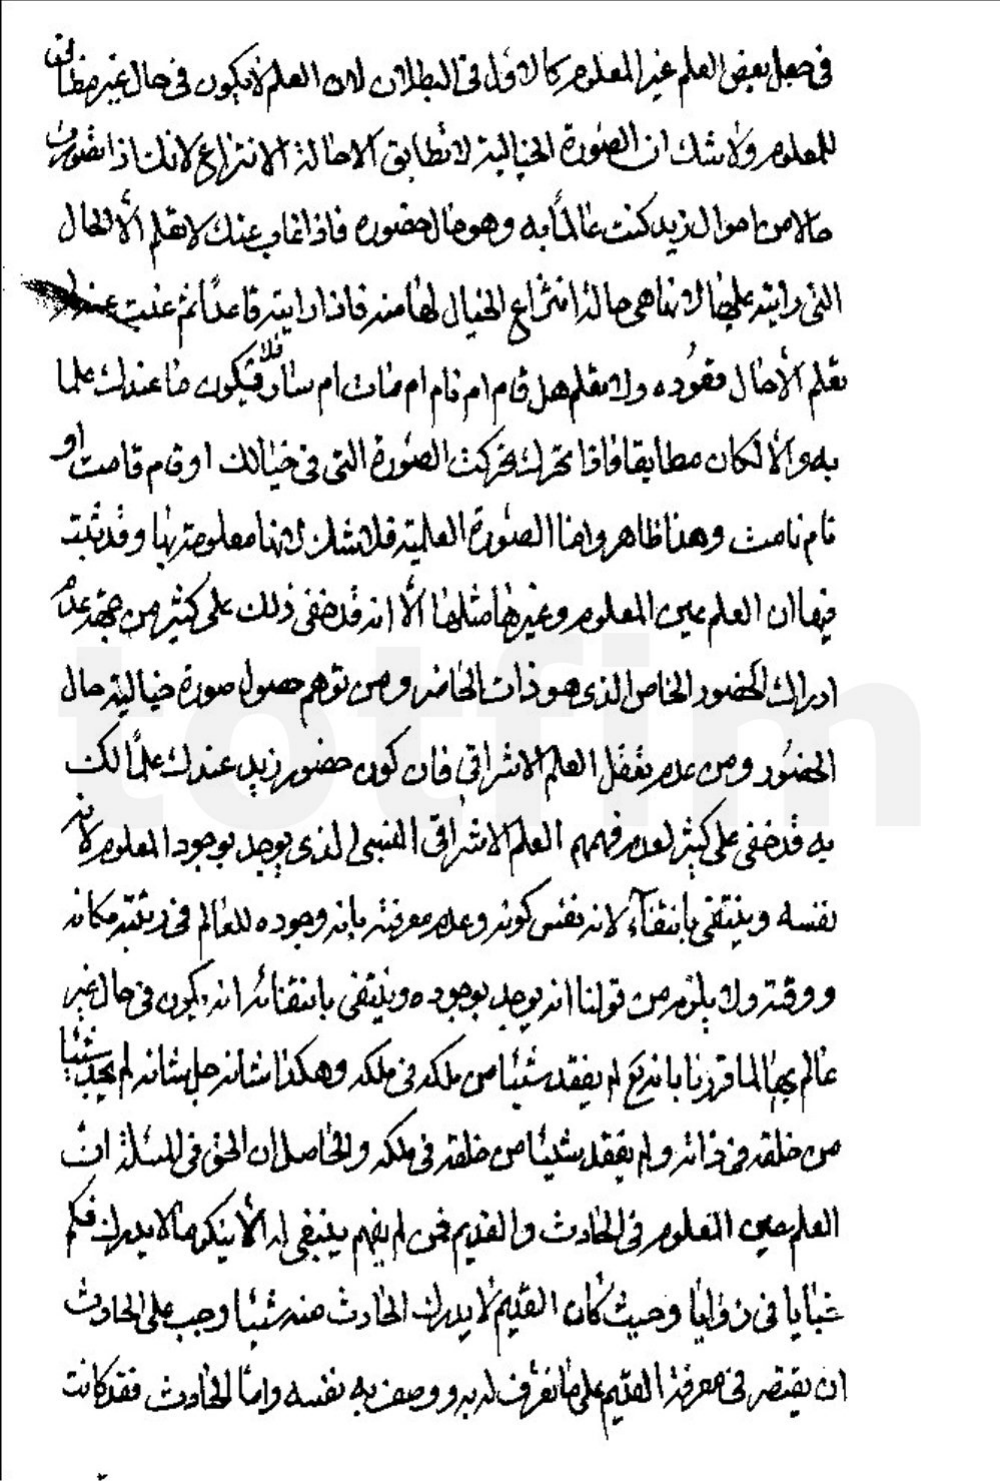 في جعل بعض العلم غير المعلوم كالاول في البطلان لان العلم لا يكون في حال غير مطابق
للمعلوم ولا شك ان الصورة الخيالية لا تطابق الا حالة الانتزاع لانك اذا تصورت
حالا من احوال زيد كنت عالما به وهو حال حضوره فاذا غاب عنك لا تعلم الا الحال
التي رايته عليها لانها هي حالة انتزاع الخيال لها منه فاذا رايته قاعدا ثم غبت عنه
تعلم الا حال قعوده ولا تعلم هل قام ام نام ام مات ام سار فلا فيكون ما عندك علما
به والا لكان مطابقا فاذا تحرك تحركت الصورة التي في خيالك او قام قامت او
نام نامت وهذا ظاهر واما الصورة العلمية فلا شك انها معلومة بها وقد ثبت
فيها ان العلم عين المعلوم وغيرها مثلها الا انه قد خفى ذلك على كثير من جهة عدم
ادراك الحضور الخاص الذي هو ذات الحاضر ومن توهم حصول صورة خيالية حال
الحضور ومن عدم تعقل العلم الاشراقي فان كون حضور زيد عندك علما لك
به قد خفى على كثير لعدم فهمهم العلم الاشراقي النسبي الذي يوجد بوجود المعلوم لانه
نفسه وينتفي بانتفاء لانه نفس كونه وعدم معرفته بانه وجوده للعالم في رتبة مكانه
ووقته ولا يلزم من قولنا انه يوجد بوجوده وينتفي بانتفائه انه يكون في حال غير
عالم بها لما قررنا بانه تع لم يفقد شيئا من ملكه في ملكه وهكذا شانه جل شانه لم يجد شيئا
من خلقه في ذاته ولم يفقد شيئا من خلقه في ملكه والحاصل ان الحق في المسئلة ان
العلم عين المعلوم في الحادث والقديم فمن لم يفهم ينبغي له الا ينكر ما لا يدرك فكم
خبايا في زوايا وحيث كان القديم لا يدرك الحادث منه شيئا وجب على الحادث
ان يقتصر في معرفة القديم على ما تعرف له به ووصف به نفسه واما الحادث فقد كانت
totfim